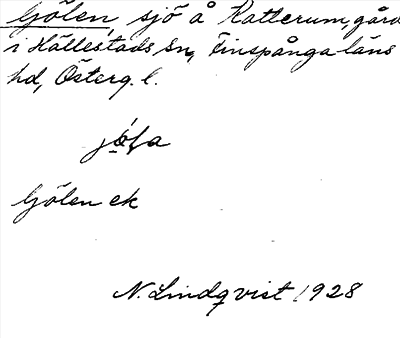 Gölen, sjö å Ratterum, gård
i Hällestads sn, Finspånga läns
hd, Österg. l.
jö́la
Gölen ek
N. Lindqvist 1928